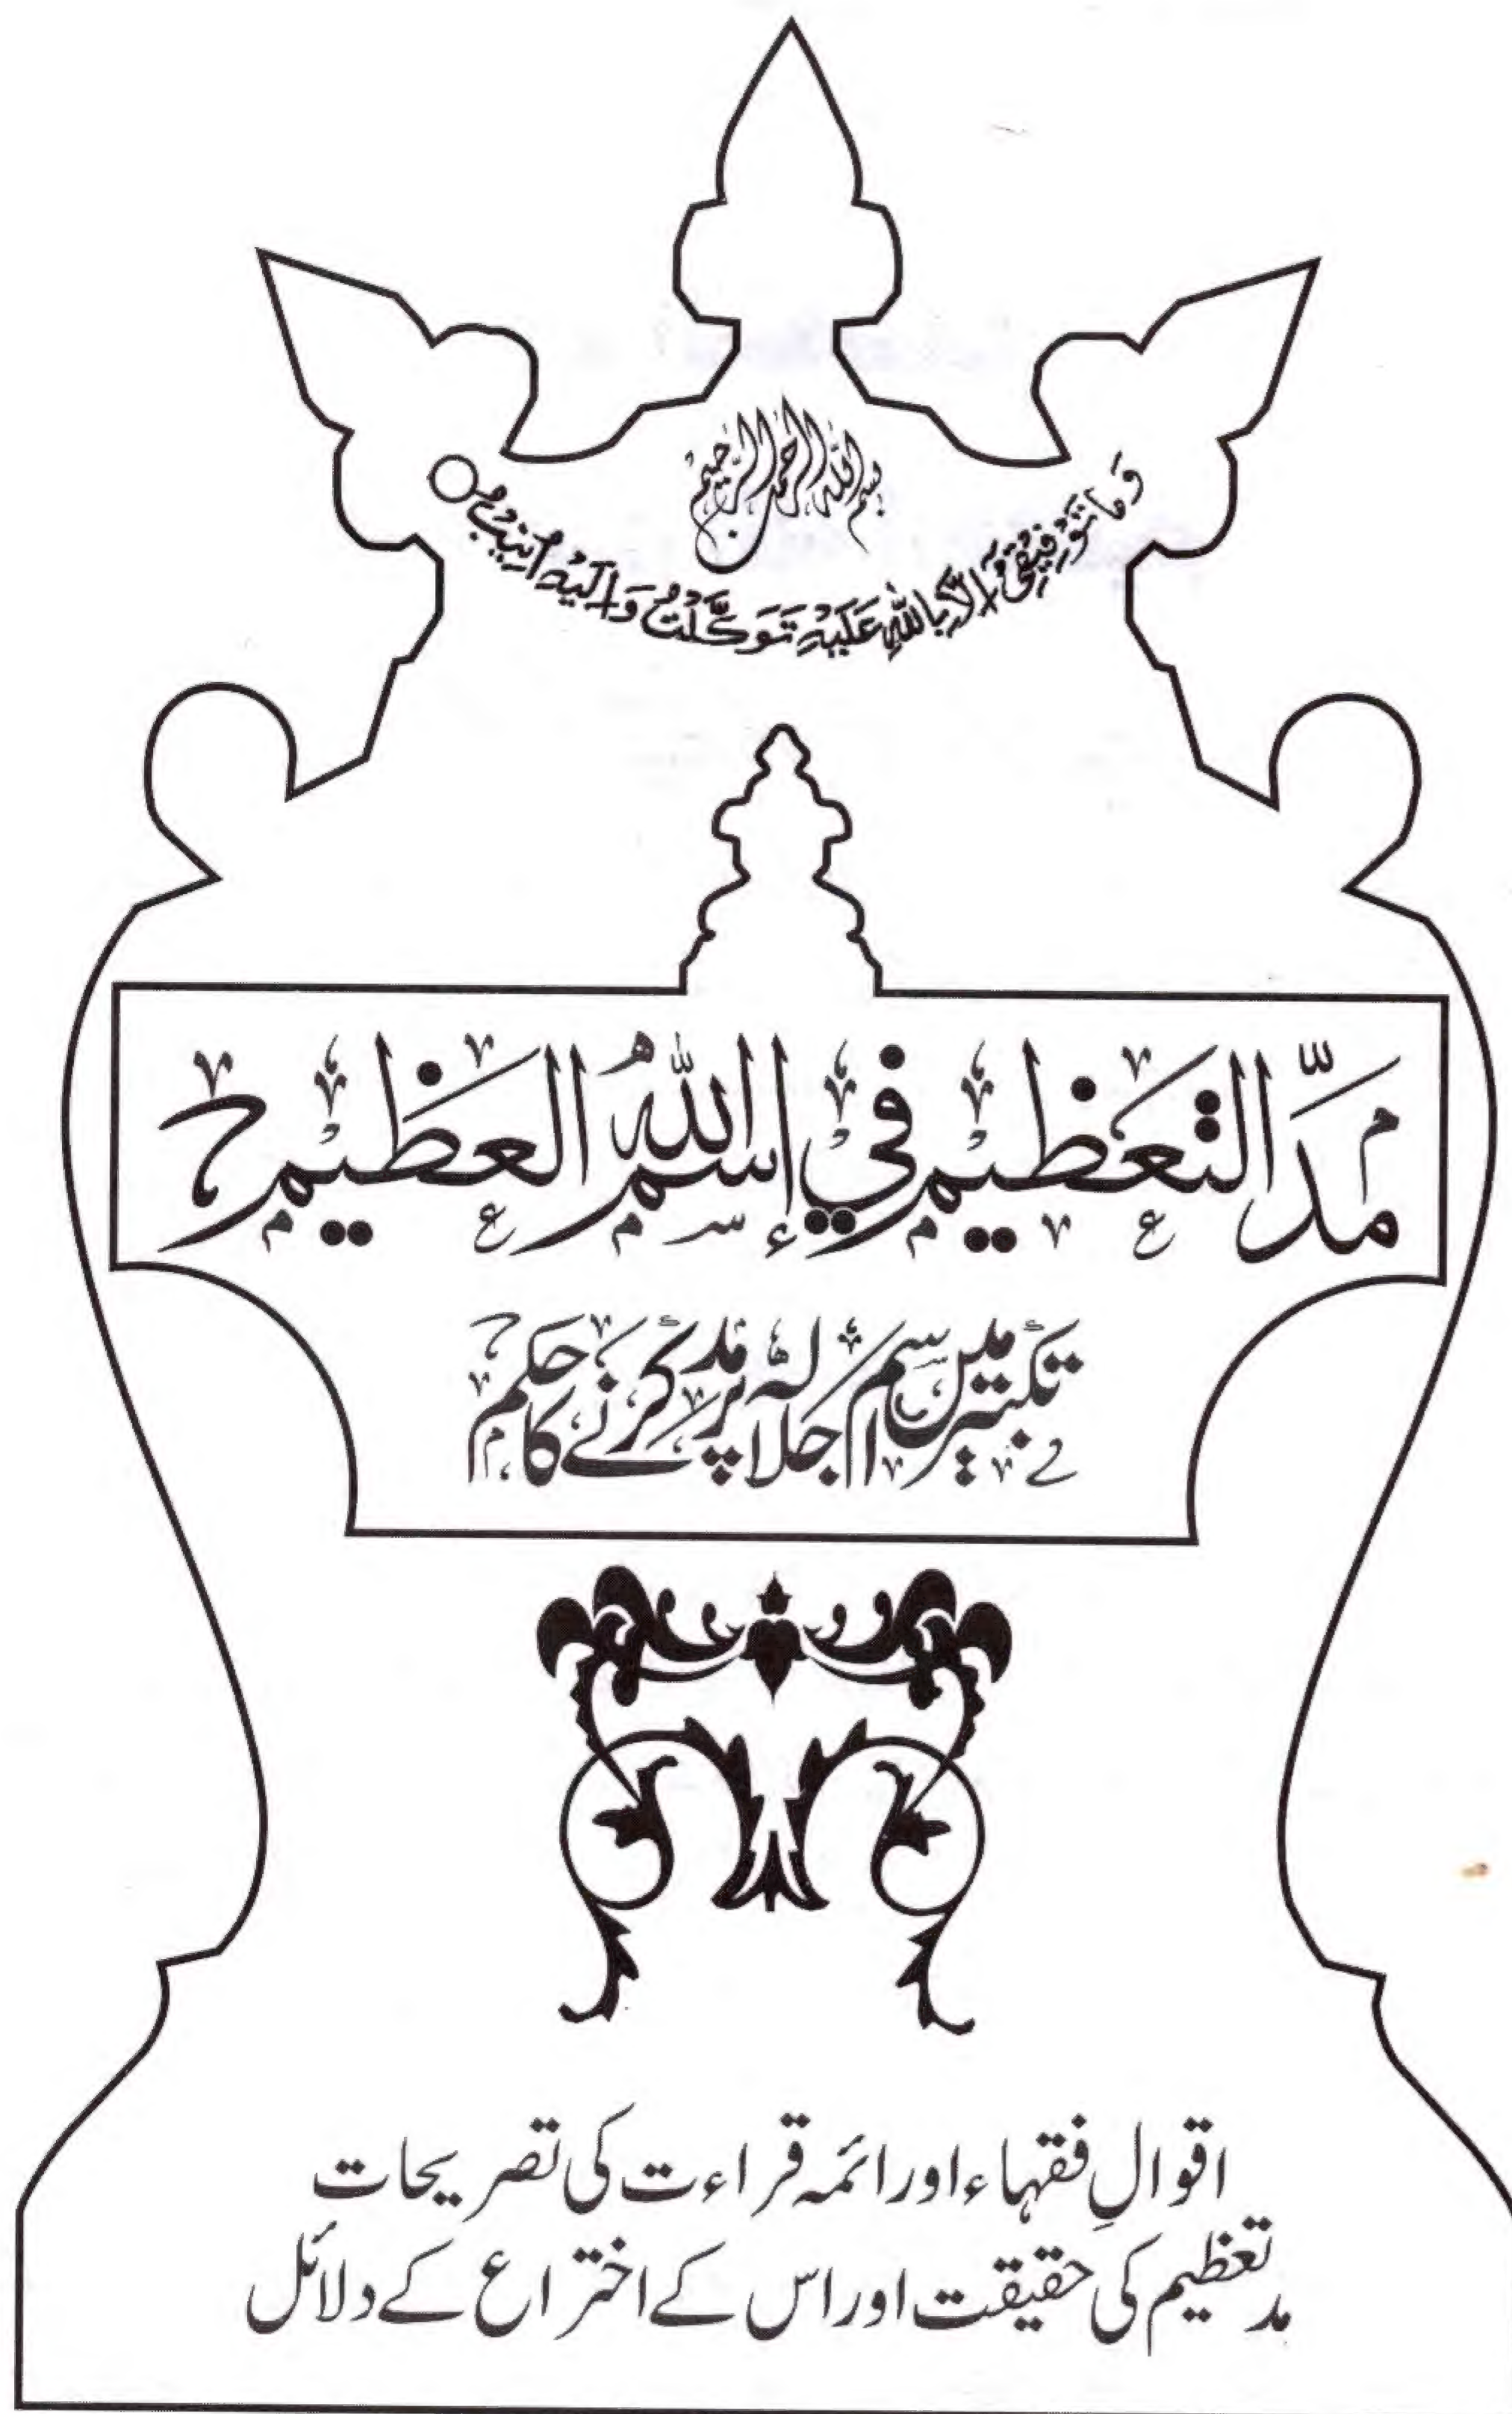 بسم الله الرحمن الرحيم
وَمَا تَوْفِيْقِيْٓ اِلَّا بِاللّٰهِ عَلَيْهِ تَوَكَّلْتُ وَاِلَيْهِ اُنِيْبُ
مدّ التعظيم في إسم اللهُ العظيم
تکبیر میں اسم جلالہ پر مد کرنے کا حکم
اقوالِ فقہاء اور ائمہ قراءت کی تصریحات
مد تعظیم کی حقیقت اور اس کے اختراع کے دلائل